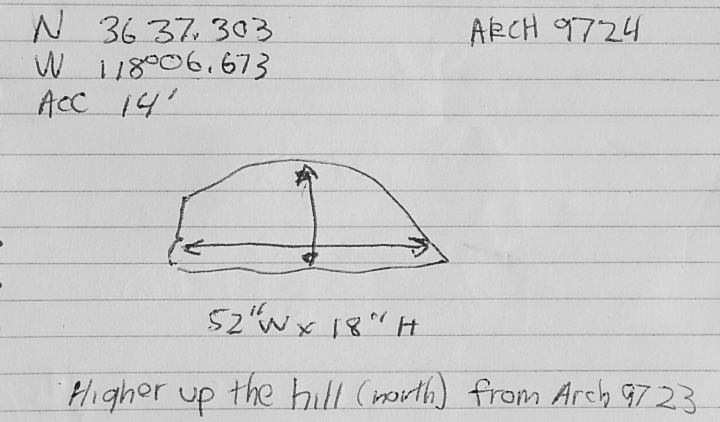 N 36 37.303 ARCH 9724
W 118°06.673
ACC 14'
52"W x 18" H
Higher up the hill (north) from Arch 9723